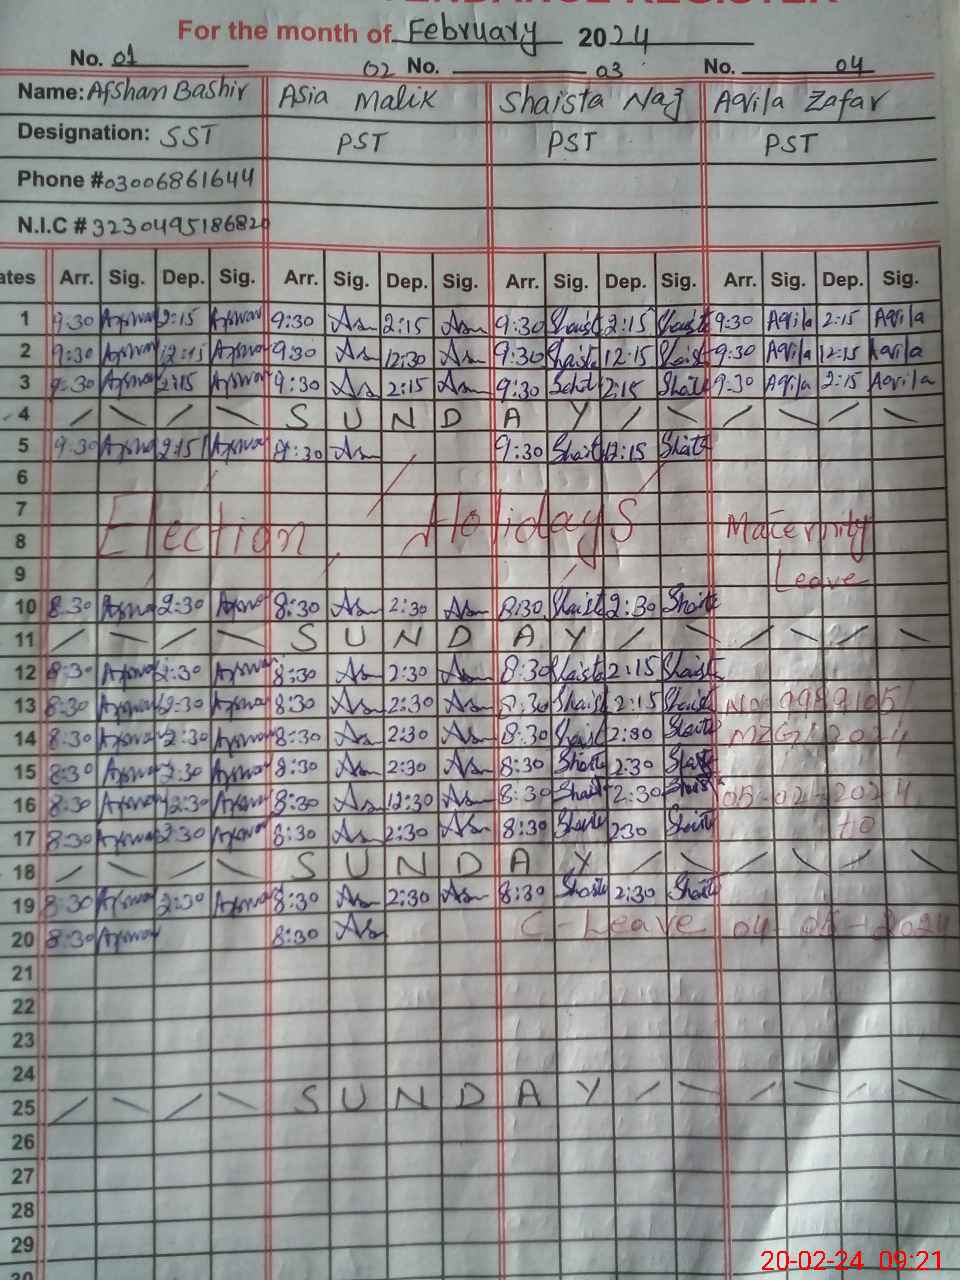 For the month of February 2024
No. 01 02 No. 03 No. 04
Name: Afshan Bashir Asia Malik Shaista Naz Aqila Zafar
Designation: SST PST PST PST
Phone #03006861644
N.I.C # 3230495186820
ates Arr. Sig. Dep. Sig. Arr. Sig. Dep. Sig. Arr. Sig. Dep. Sig. Arr. Sig. Dep. Sig.
1 9:30 2:15 9:30 As 2:15 As 9:30 Shaist 2:15 Shaist 9:30 Aqila 2:15 Aqila
2 9:30 12:15 9:30 As 12:30 As 9:30 Shaist 12:15 Shaist 9:30 Aqila 12:15 Aqila
3 9:30 2:15 9:30 As 2:15 As 9:30 2:15 9:30 Aqila 2:15 Aqila
4 S U N D A Y
5 9:30 9:30 As 9:30 12:15
6
7
8 Election Holidays Maternity
9 Leave
10 8:30 2:30 8:30 As 2:30 As 8:30 Shaist 2:30
11 S U N D A Y
12 8:30 2:30 8:30 As 2:30 As 8:30 Shaist 2:15 Shaist
13 8:30 2:30 8:30 As 2:30 As 8:30 Shaist 2:15 Shaist No
14 8:30 2:30 8:30 As 2:30 As 8:30 2:30 MZG 2024
15 8:30 2:30 8:30 As 2:30 As 8:30 2:30
16 8:30 12:30 8:30 As 12:30 As 8:30 2:30 05-02-2024
17 8:30 2:30 8:30 As 2:30 As 8:30 230 to
18 S U N D A Y
19 8:30 2:30 8:30 As 2:30 As 8:30 2:30
20 8:30 8:30 As C-Leave 04-05-2024
21
22
23
24
25 S U N D A Y
26
27
28
29
20-02-24 09:21